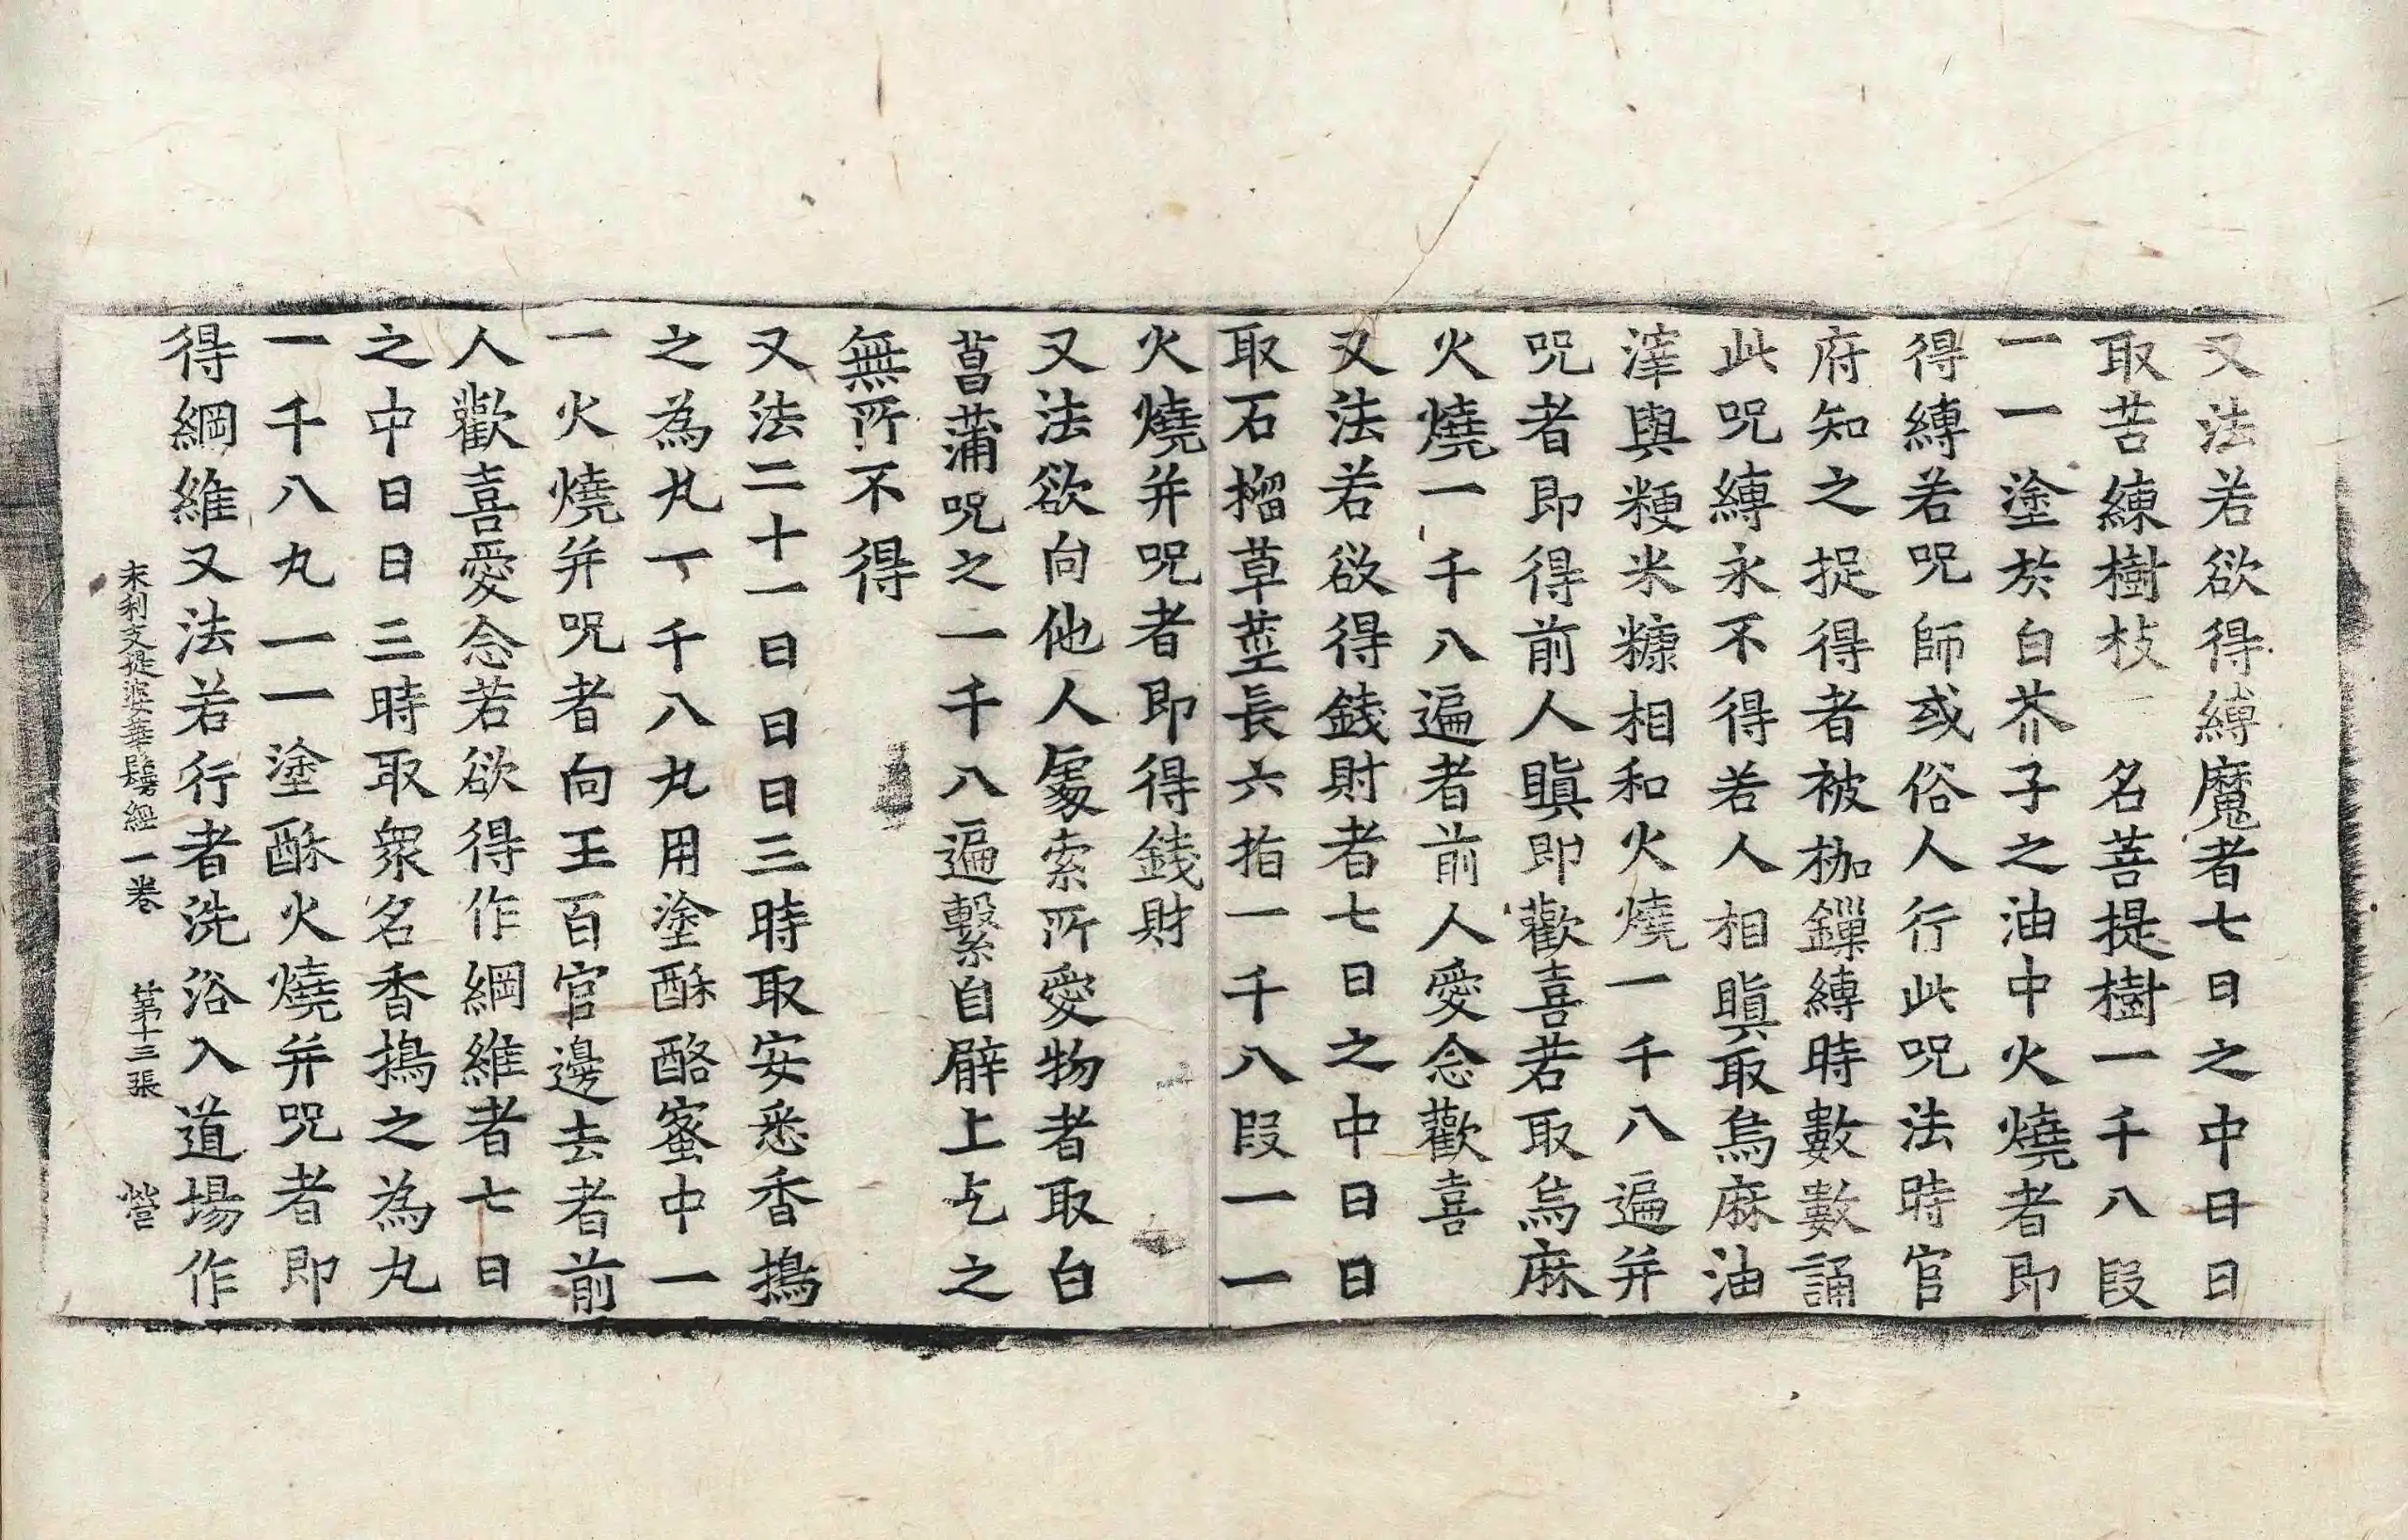 又法若欲得縛魔者七日之中日日
取苦練樹枝一名菩提樹一千八段
一一塗於白芥子之油中火燒者即
得縛若呪師或俗人行此呪法時官
府知之捉得者被枷鏁縛時數數誦
此呪縛永不得若人相瞋取烏麻油
滓與粳米糠相和火燒一千八遍并
呪者即得前人瞋即歡喜若取烏麻
火燒一千八遍者前人愛念歡喜
又法若欲得錢財者七日之中日日
取石榴草莖長六指一千八段一一
火燒并呪者即得錢財
又法欲向他人處索所愛物者取白
菖蒲呪之一千八遍繫自臂上乞之
無所不得
又法二十一日日日三時取安悉香搗
之為丸一千八丸用塗酥酪蜜中一
一火燒并呪者向王百官邊去者前
人歡喜愛念若欲得作綱維者七日
之中日日三時取衆名香搗之為丸
一千八丸一一塗酥火燒并呪者即
得綱維又法若行者洗浴入道場作
末利支提婆華鬘經一卷 第十三張 營